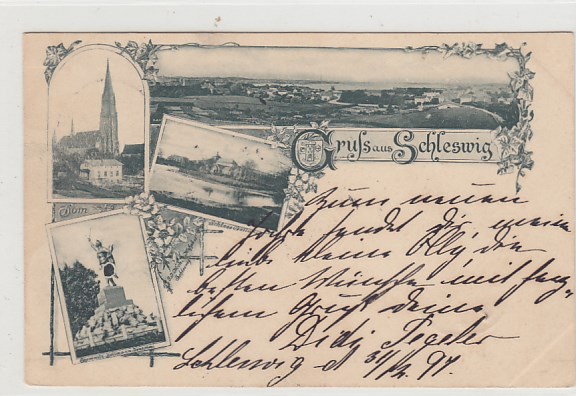 Gruß aus Schleswig
Dom
Zum neuen
Jahre sendet Dir, meine
liebe kleine Olly, die
besten Wünsche mit herz-
lichem Gruß deine
Didy
Schleswig d 31/12. 97.